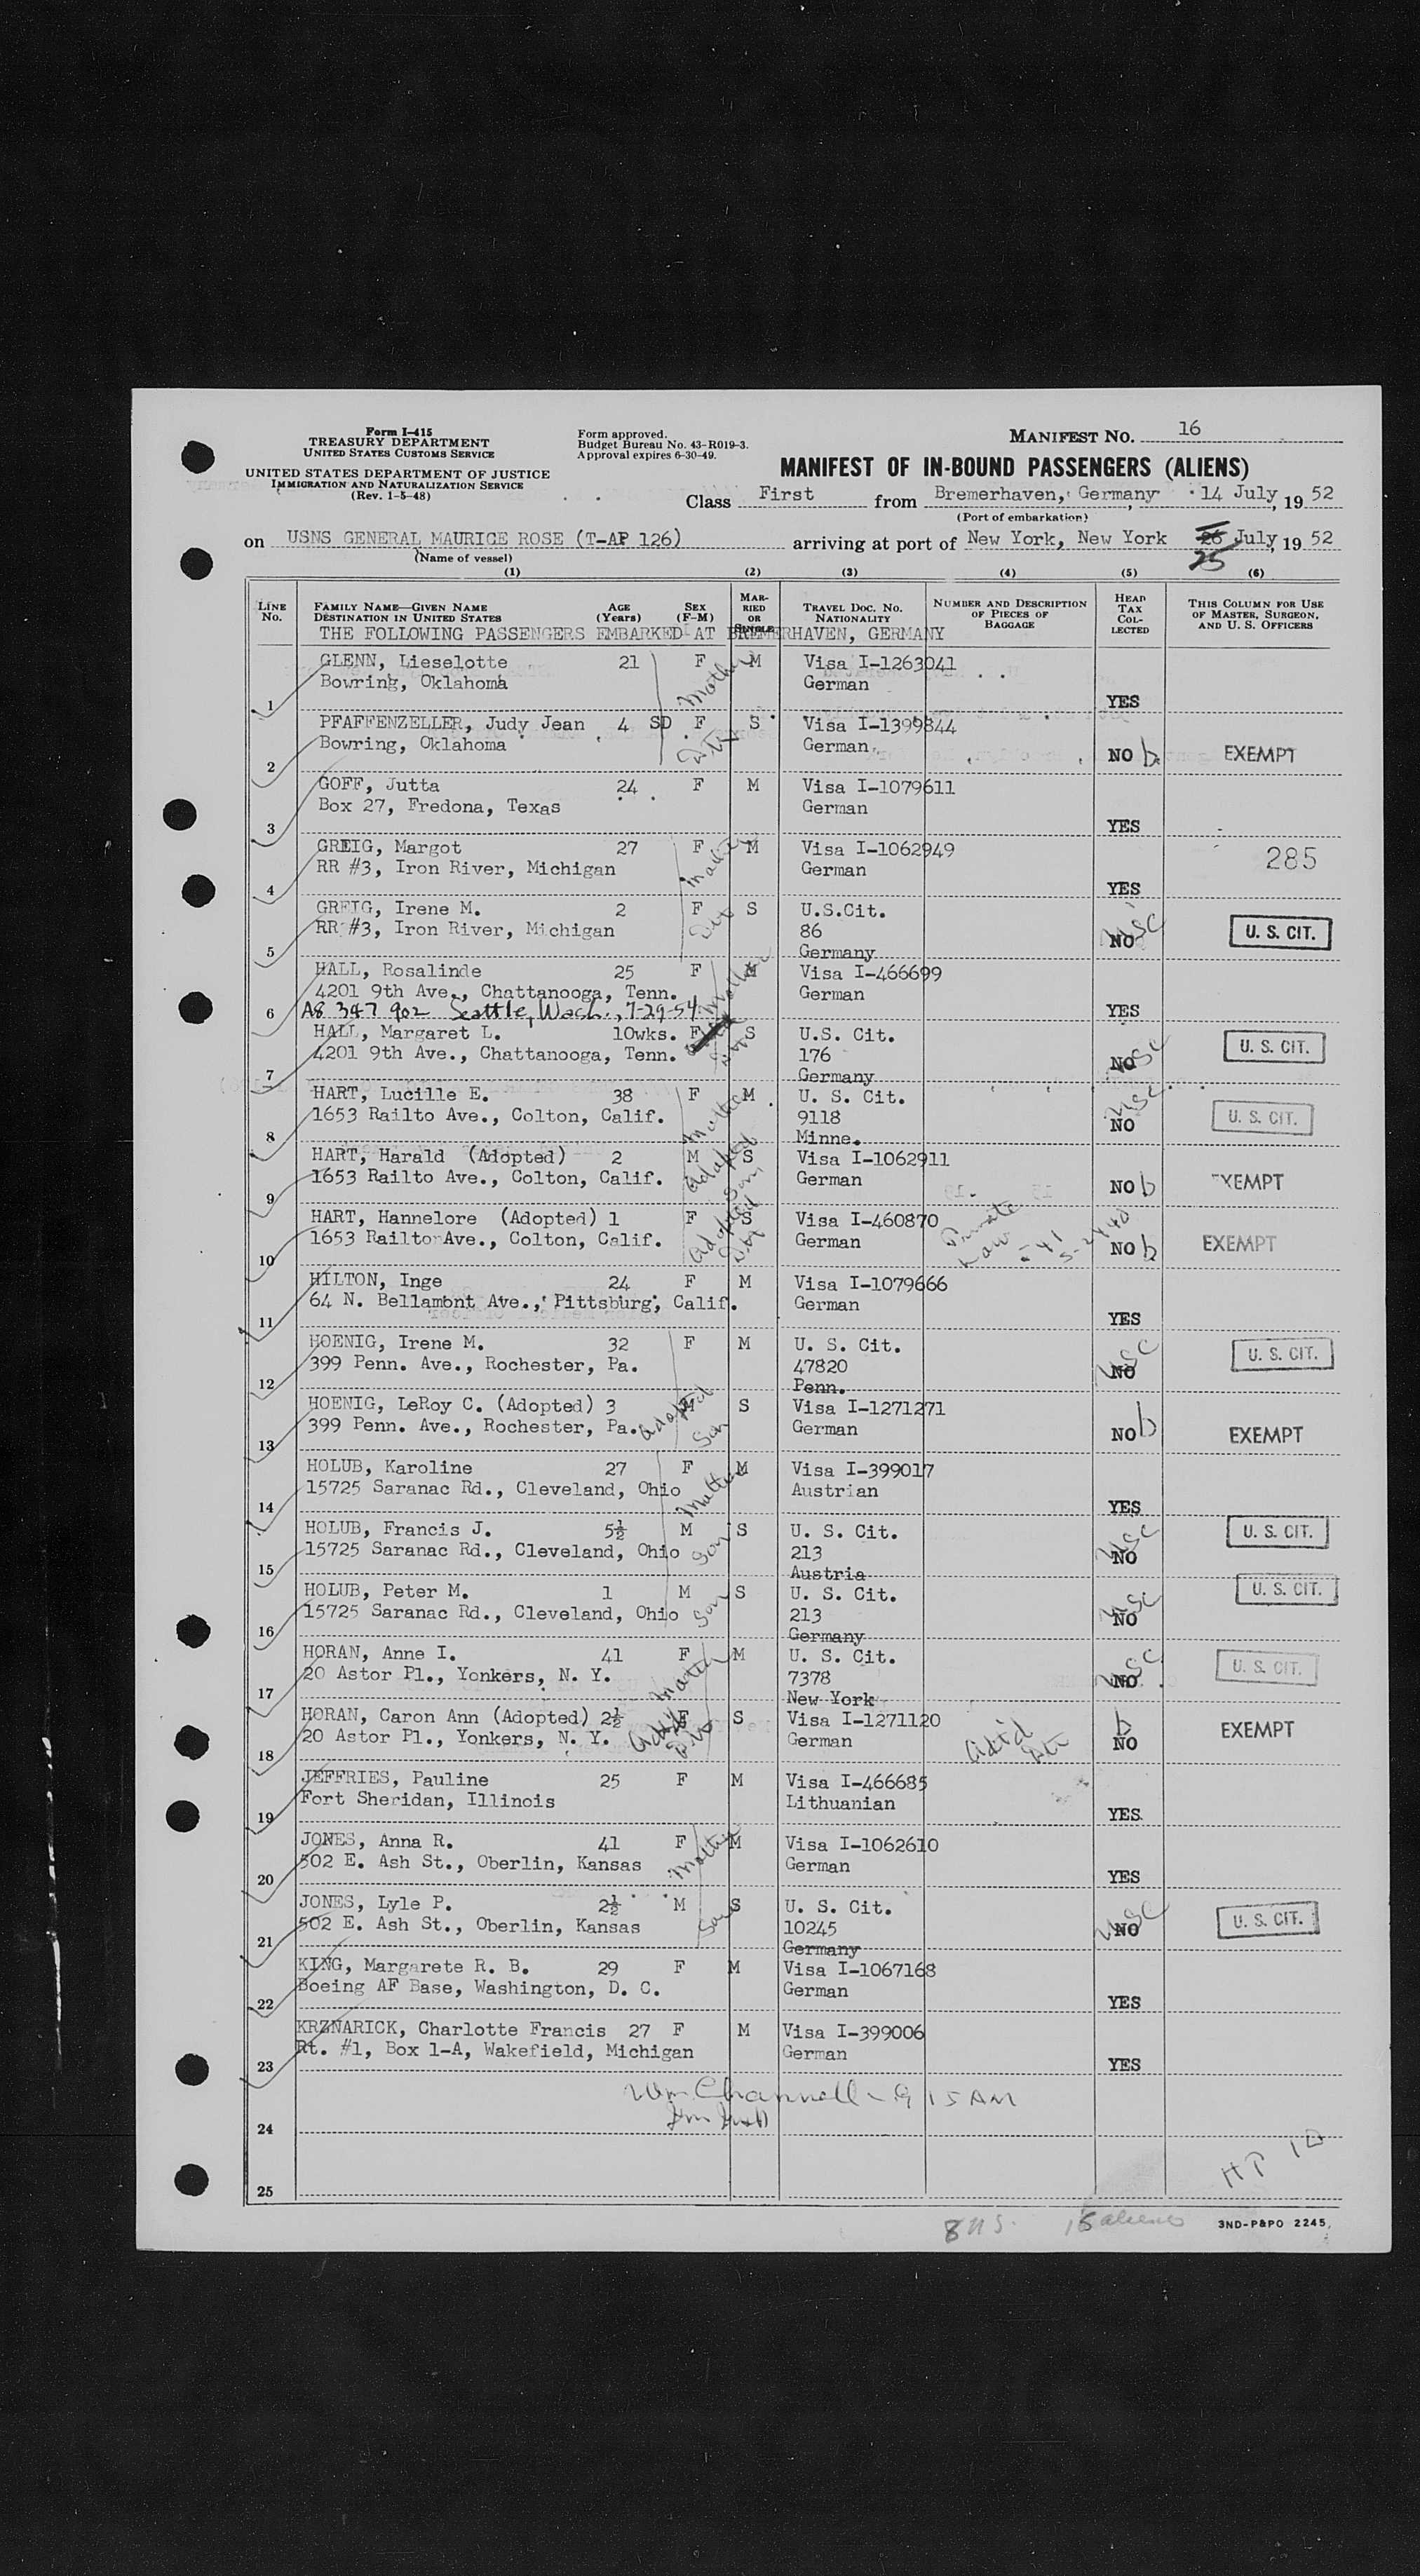 Form I-415
TREASURY DEPARTMENT
UNITED STATES CUSTOMS SERVICE
UNITED STATES DEPARTMENT OF JUSTICE
IMMIGRATION AND NATURALIZATION SERVICE
(Rev. 1-5-48)
Form approved.
Budget Bureau No. 43-R019-3.
Approval expires 6-30-49.
MANIFEST NO. 16
MANIFEST OF IN-BOUND PASSENGERS (ALIENS)
Class First from Bremerhaven, Germany, 14 July, 19 52
(Port of embarkation)
on USNS GENERAL MAURICE ROSE (T-AP 126) arriving at port of New York, New York 26 July, 19 52
25
(Name of vessel)
(1) (2) (3) (4) (5) (6)
LINE No. FAMILY NAME—GIVEN NAME DESTINATION IN UNITED STATES AGE (Years) SEX (F-M) MARRIED OR SINGLE TRAVEL DOC. NO. NATIONALITY NUMBER AND DESCRIPTION OF PIECES OF BAGGAGE HEAD TAX COLLECTED THIS COLUMN FOR USE OF MASTER, SURGEON, AND U. S. OFFICERS
THE FOLLOWING PASSENGERS EMBARKED AT BREMERHAVEN, GERMANY
GLENN, Lieselotte 21 F Mother M Visa I-1263041
Bowring, Oklahoma German
1 YES
PFAFFENZELLER, Judy Jean 4 SD F S Visa I-1399844
Bowring, Oklahoma Dtr German
2 NO b EXEMPT
GOFF, Jutta 24 F M Visa I-1079611
Box 27, Fredona, Texas German
3 YES
GREIG, Margot 27 F Mother M Visa I-1062949
RR #3, Iron River, Michigan German 285
4 YES
GREIG, Irene M. 2 F S U.S.Cit.
RR #3, Iron River, Michigan Dtr 86 USC U. S. CIT.
5 Germany NO
HALL, Rosalinde 25 F Mother M Visa I-466699
4201 9th Ave., Chattanooga, Tenn. German
6 A8 347 902 Seattle, Wash., 7-29-54 YES
HALL, Margaret L. 10wks. F S U.S. Cit.
4201 9th Ave., Chattanooga, Tenn. Dtr 176 USC U. S. CIT.
7 Germany NO
HART, Lucille E. 38 F M U. S. Cit.
1653 Railto Ave., Colton, Calif. Mother 9118 USC U. S. CIT.
8 Minne. NO
HART, Harald (Adopted) 2 M S Visa I-1062911
1653 Railto Ave., Colton, Calif. Adopted Son German
9 NO b EXEMPT
HART, Hannelore (Adopted) 1 F S Visa I-460870
1653 Railto Ave., Colton, Calif. Adopted Dtr German Private Law
10 NO b EXEMPT
HILTON, Inge 24 F M Visa I-1079666
64 N. Bellambnt Ave., Pittsburg, Calif. German
11 YES
HOENIG, Irene M. 32 F M U. S. Cit.
399 Penn. Ave., Rochester, Pa. 47820 USC U. S. CIT.
12 Penn. NO
HOENIG, LeRoy C. (Adopted) 3 M S Visa I-1271271
399 Penn. Ave., Rochester, Pa. Adopted Son German
13 NO b EXEMPT
HOLUB, Karoline 27 F M Visa I-399017
15725 Saranac Rd., Cleveland, Ohio Mother Austrian
14 YES
HOLUB, Francis J. 5½ M S U. S. Cit.
15725 Saranac Rd., Cleveland, Ohio Son 213 USC U. S. CIT.
15 Austria NO
HOLUB, Peter M. 1 M S U. S. Cit.
15725 Saranac Rd., Cleveland, Ohio Son 213 USC U. S. CIT.
16 Germany NO
HORAN, Anne I. 41 F M U. S. Cit.
20 Astor Pl., Yonkers, N. Y. Mother 7378 USC U. S. CIT.
17 New York NO
HORAN, Caron Ann (Adopted) 2½ F S Visa I-1271120
20 Astor Pl., Yonkers, N. Y. Dtr German b EXEMPT
18 NO
JEFFRIES, Pauline 25 F M Visa I-466685
Fort Sheridan, Illinois Lithuanian
19 YES
JONES, Anna R. 41 F M Visa I-1062610
502 E. Ash St., Oberlin, Kansas Mother German
20 YES
JONES, Lyle P. 2½ M S U. S. Cit.
502 E. Ash St., Oberlin, Kansas Son 10245 USC U. S. CIT.
21 Germany NO
KING, Margarete R. B. 29 F M Visa I-1067168
Boeing AF Base, Washington, D. C. German
22 YES
KRZNARICK, Charlotte Francis 27 F M Visa I-399006
Rt. #1, Box 1-A, Wakefield, Michigan German
23 YES
Wm Channell - 9 15 AM
24
25
8 US. 15 aliens 3ND-P&PO 2245